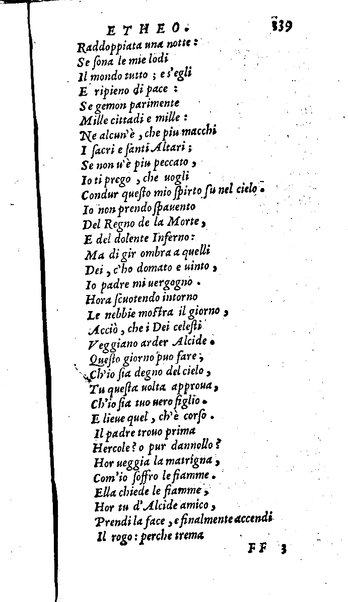 ETHEO. 339
Raddoppiata una notte:
Se sona le mie lodi
Il mondo tutto; e s'egli
E ripieno di pace:
Se gemon parimente
Mille cittadi e mille:
Ne alcun'è, che piu macchi
I sacri e santi Altari;
Se non u'è piu peccato,
Io ti prego, che uogli
Condur questo mio spirto su nel cielo.
Io non prendo spauento
Del Regno de la Morte,
E del dolente Inferno:
Ma di gir ombra a quelli
Dei, c'ho domato e uinto,
Io padre mi uergogno.
Hora scuotendo intorno
Le nebbie mostra il giorno,
Acciò, che i Dei celesti
Veggiano arder Alcide.
Questo giorno puo fare,
Ch'io sia degno del cielo,
Tu questa uolta approua,
Ch'io sia tuo uero figlio.
E lieue quel, ch'è corso.
Il padre trouo prima
Hercole? o pur dannollo?
Hor ueggia la matrigna,
Com'io soffro le fiamme.
Ella chiede le fiamme,
Hor tu d'Alcide amico,
Prendi la face, e finalmente accendi
Il rogo: perche trema
FF 3